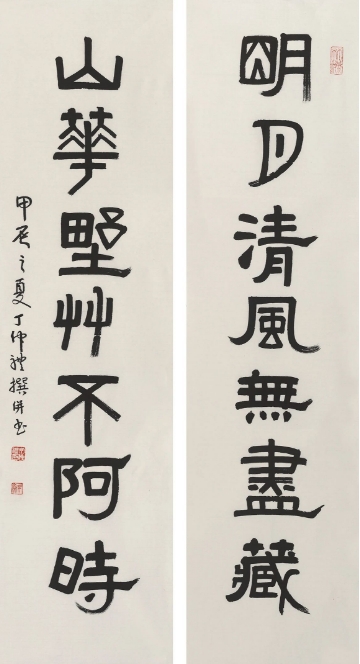 明月清風無盡藏
山華野艸不阿時
甲辰之夏丁仲礼撰併书